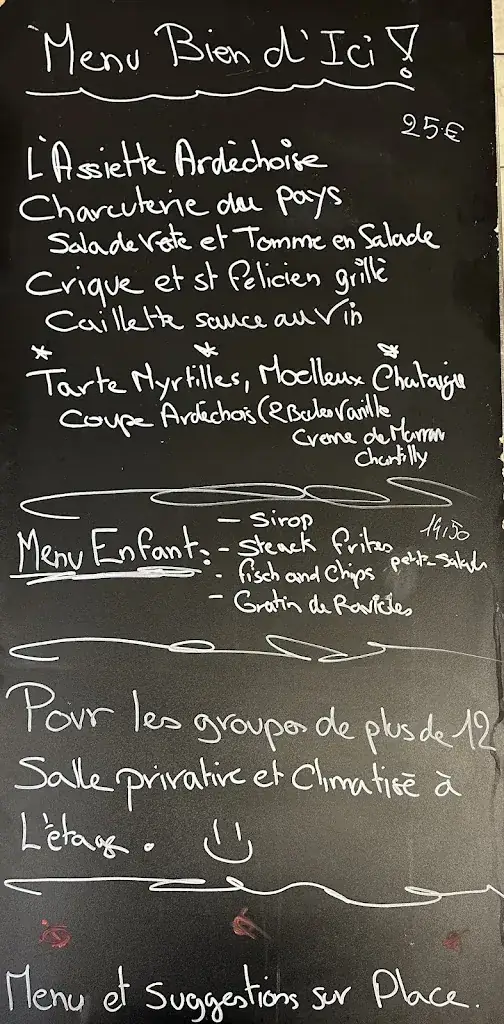 Menu Bien d'Ici !
25.€
L'Assiette Ardèchoise
Charcuterie du pays
Salade Verte et Tomme en Salade
Crique et st Felicien grillé
Caillette sauce au Vin
* * *
Tarte Myrtilles, Moelleux Chataigne
Coupe Ardèchois (2 Boules Vanille
Creme de Marron
Chantilly
- Sirop 14,50
Menu Enfant: - Steack Frites petite Salade
- Fisch and Chips
- Gratin de Ravioles
Pour les groupes de plus de 12
Salle privative et Climatisé à
L'étage. :)
Menu et Suggestions sur Place.